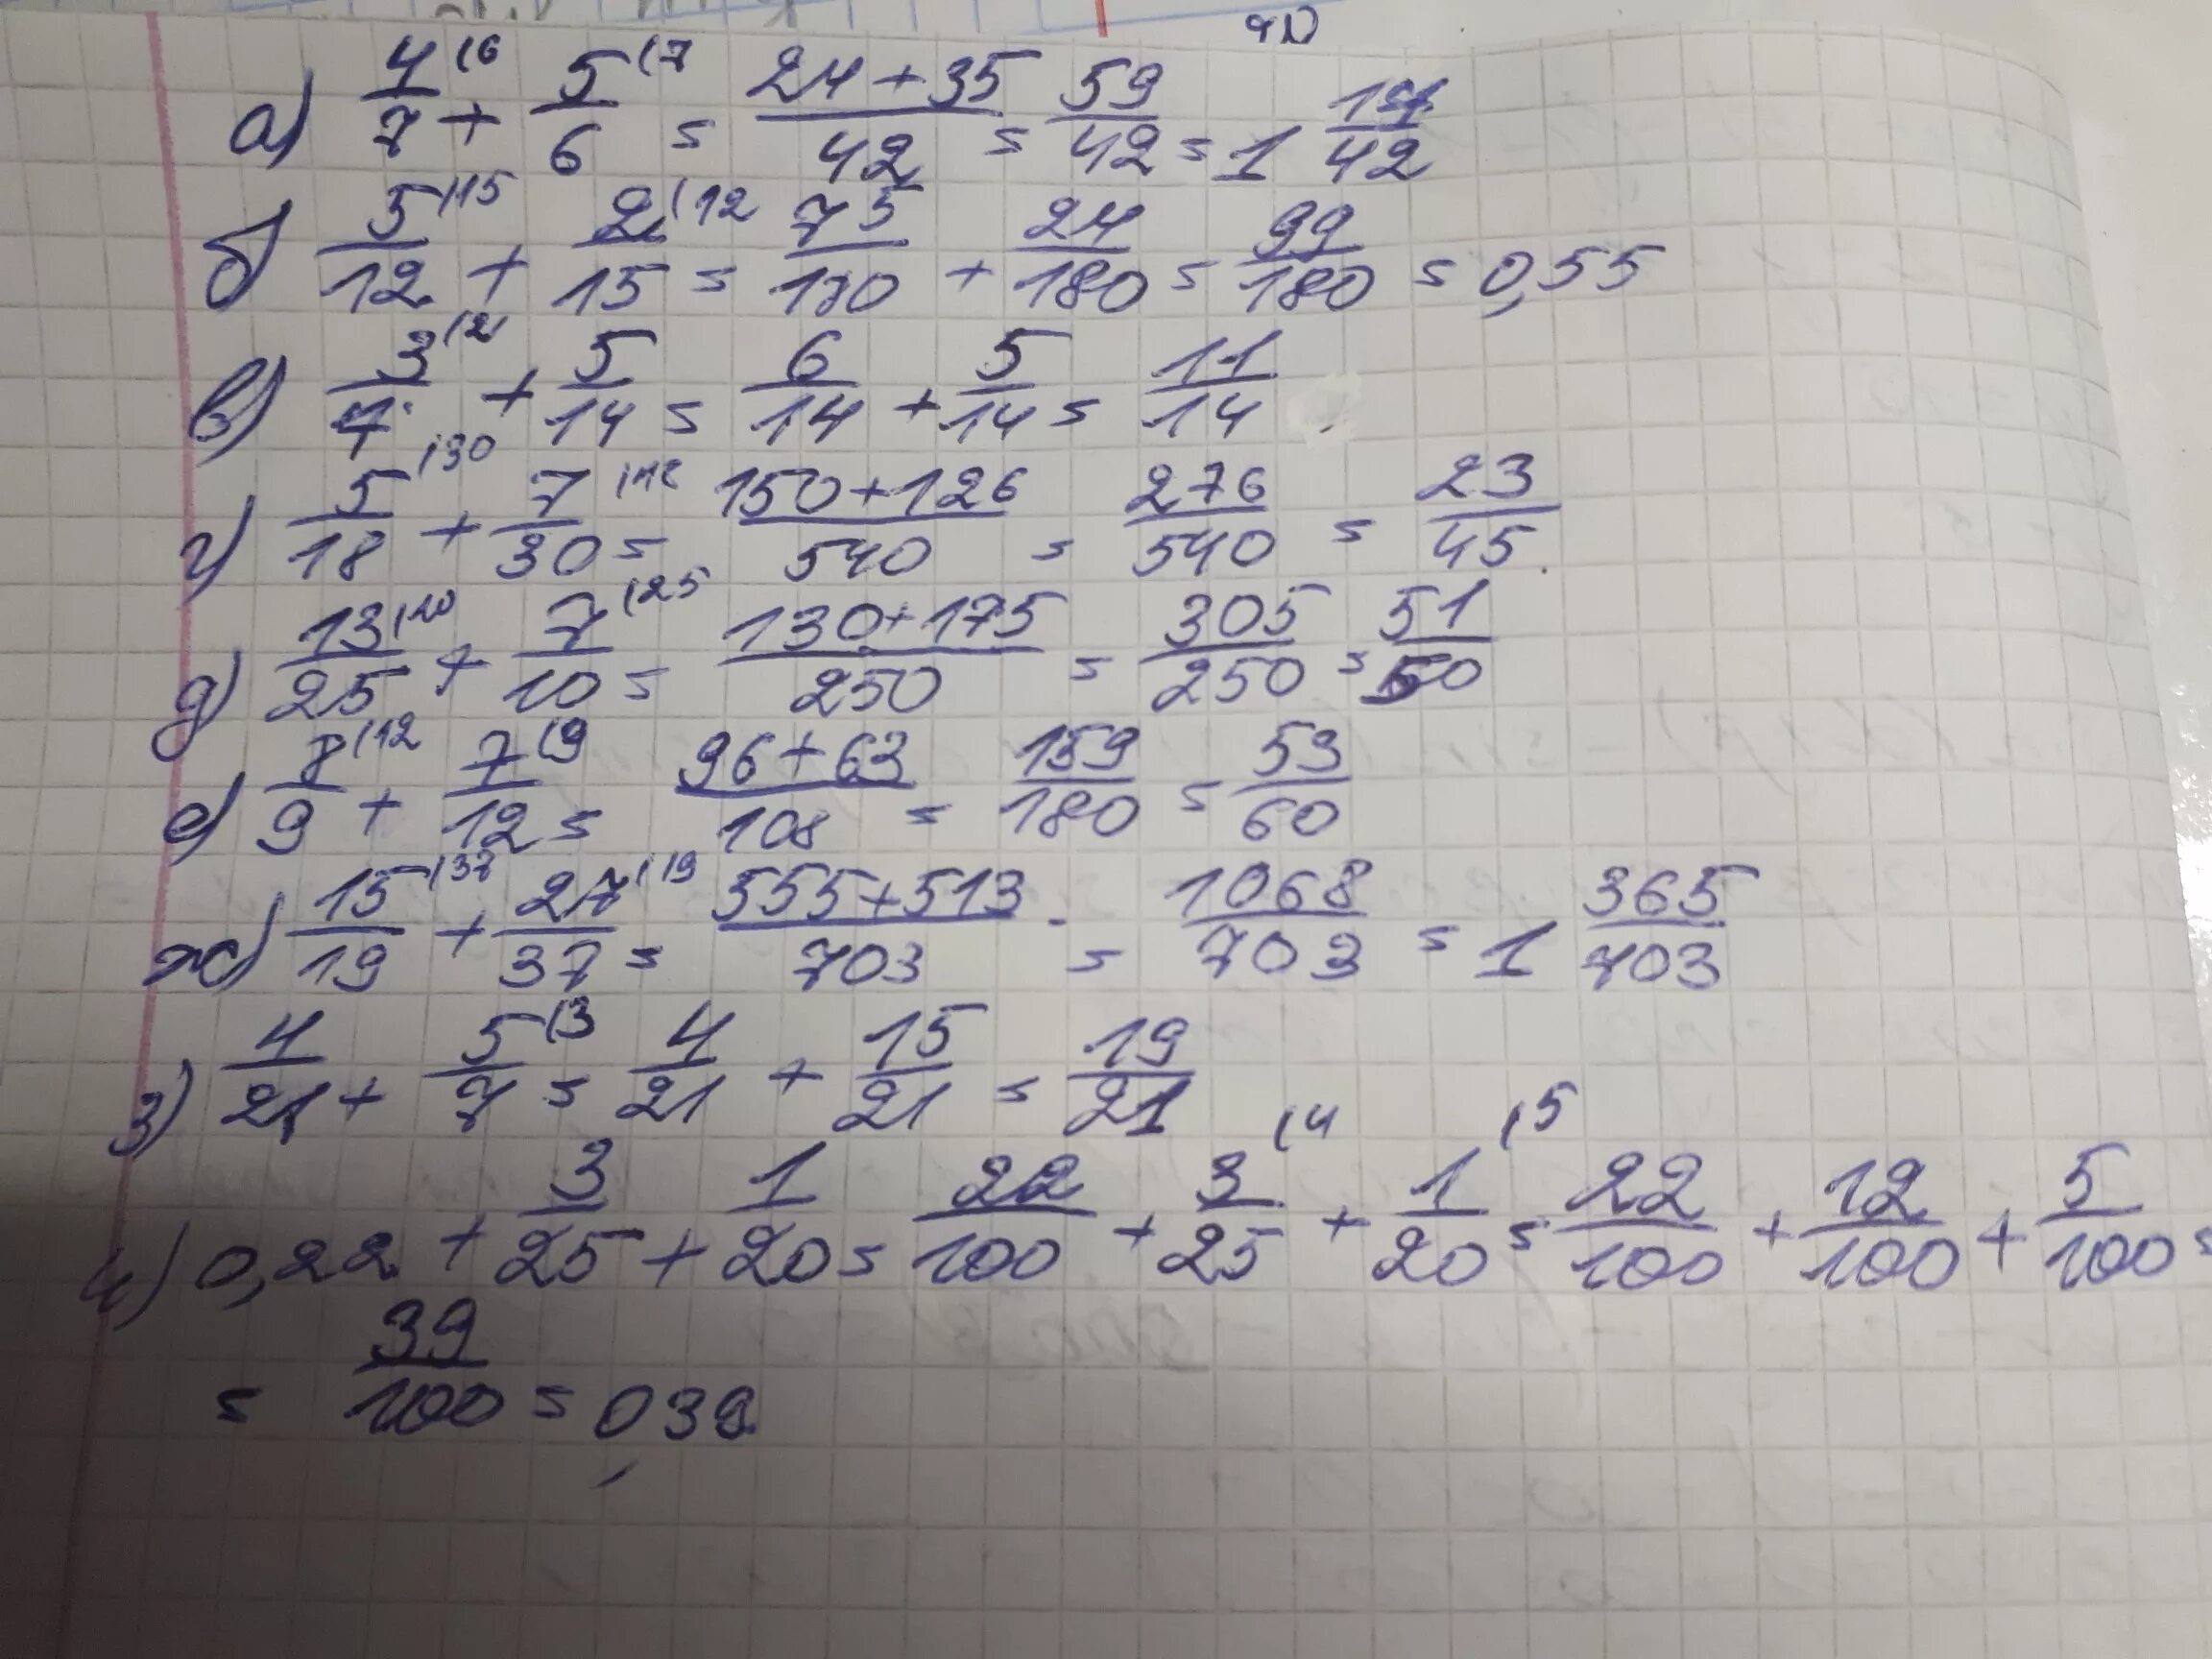 а) 4/7 (6 + 5/6 (7 = (24+35)/42 = 59/42 = 1 17/42
б) 5/12 (15 + 2/15 (12 = 75/180 + 24/180 = 99/180 = 0,55
в) 3/7 (2 + 5/14 = 6/14 + 5/14 = 11/14
г) 5/18 (30 + 7/30 (18 = (150+126)/540 = 276/540 = 23/45
д) 13/25 (10 + 7/10 (25 = (130+175)/250 = 305/250 = 51/50
е) 8/9 (12 + 7/12 (9 = (96+63)/108 = 159/180 = 53/60
ж) 15/19 (37 + 27/37 (19 = (555+513)/703 = 1068/703 = 1 365/703
з) 4/21 + 5/7 (3 = 4/21 + 15/21 = 19/21
и) 0,22 + 3/25 + 1/20 = 22/100 + 3/25 (4 + 1/20 (5 = 22/100 + 12/100 + 5/100 =
= 39/100 = 0,39